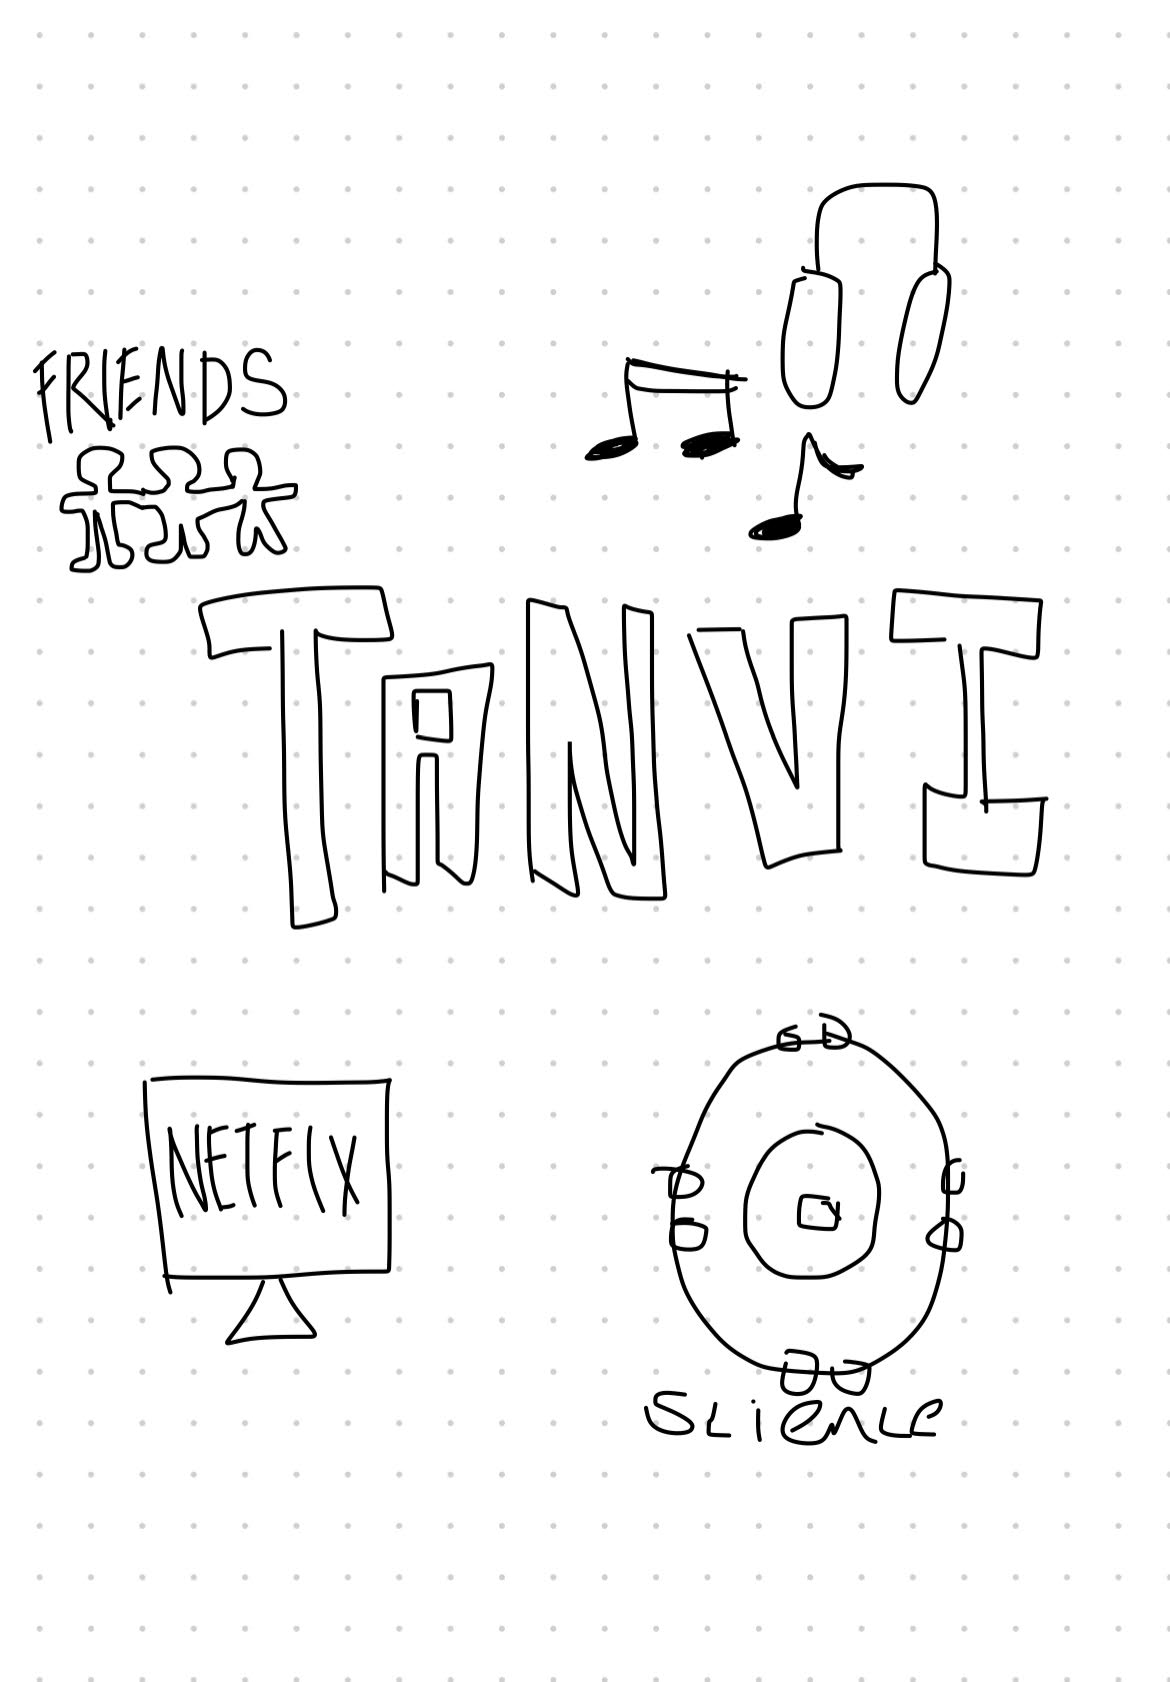 FRIENDS
TANVI
NETFIX
SCiENCe